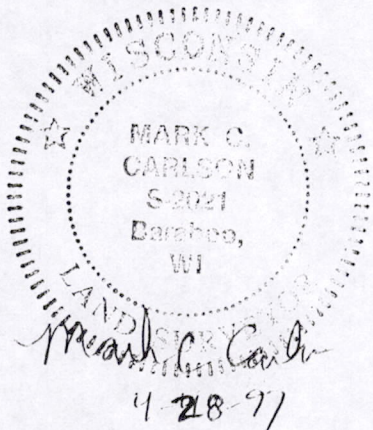 WISCONSIN
MARK C.
CARLSON
S-2021
Baraboo,
WI
LAND SURVEYOR
Mark C. Carlson
4-28-97